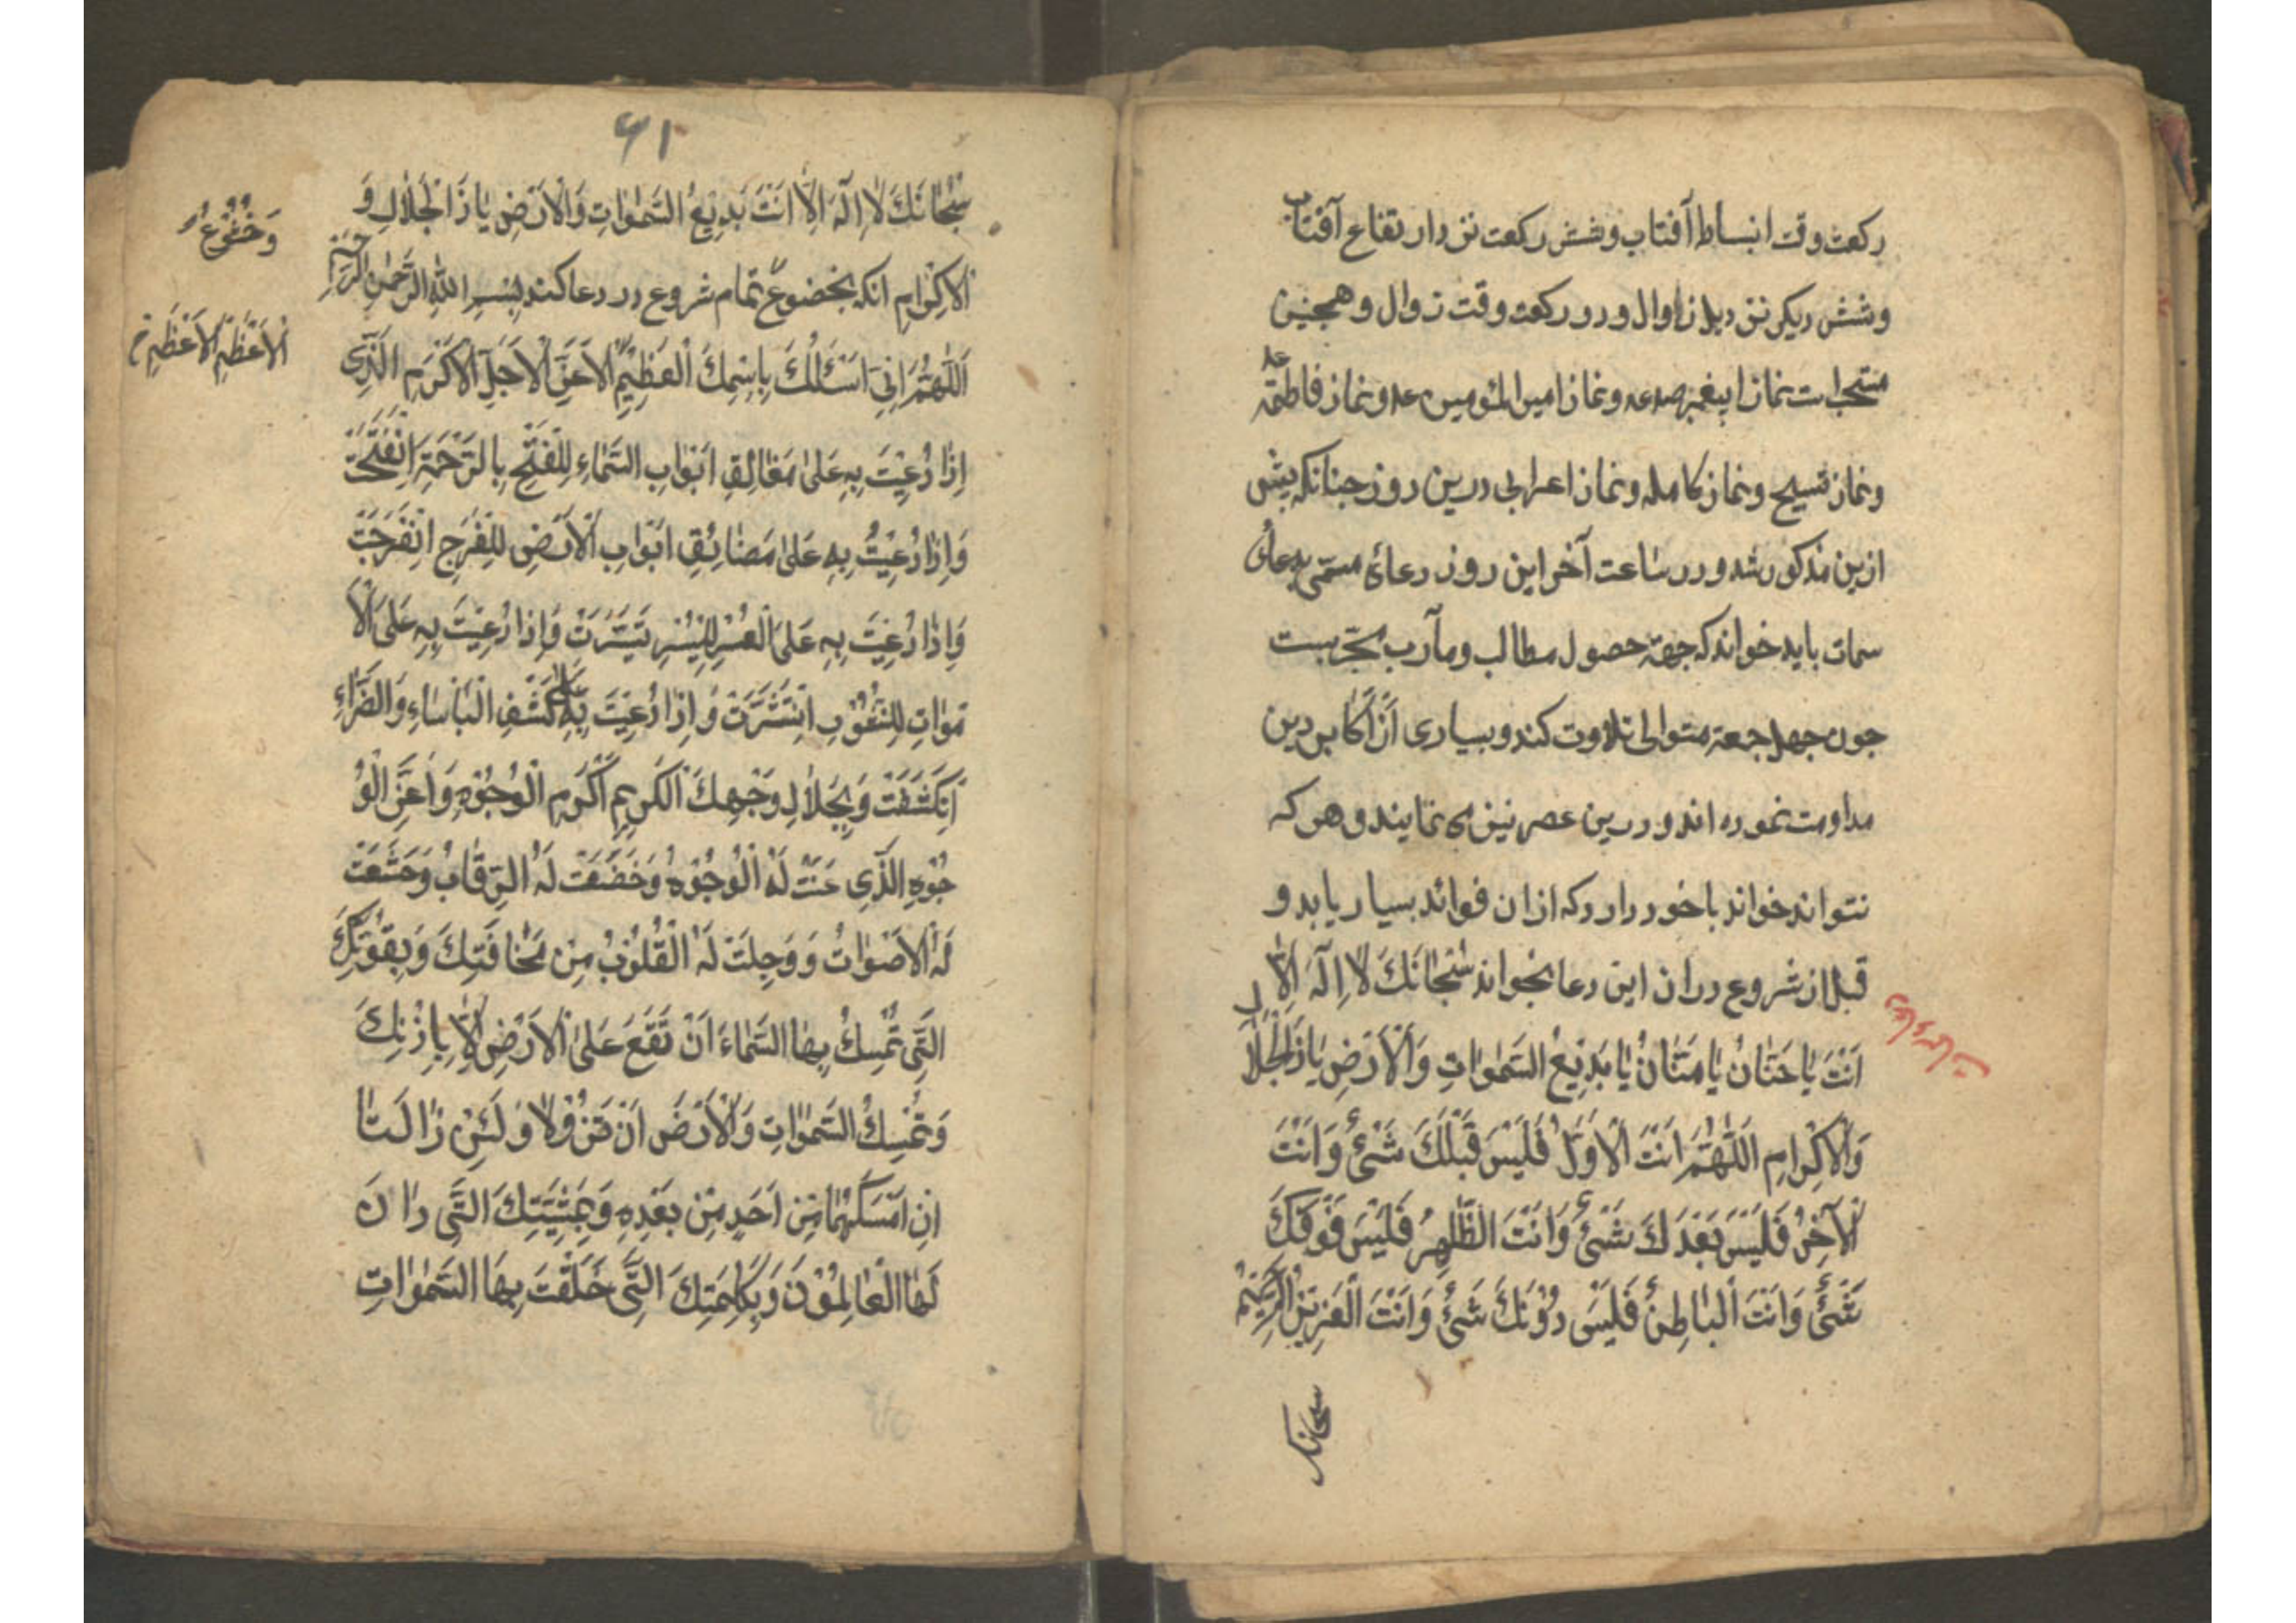 ركعت وقت انبساط آفتاب و شش ركعت نزد ارتفاع آفتاب
و شش ديكر نزديك زاوال و دو ركعت وقت زوال و همچنين
مستحب است نماز پيغمبر صلعم و نماز امير المؤمنين ع و نماز فاطمه ع
و نماز تسبيح و نماز كامله و نماز اعرابى درين روز چنانكه پيش
ازين مذكور شد و در ساعت آخر اين روز دعائى مسمى بدعاى
سمات بايد خواند كه جهة حصول مطالب و مآرب مجربست
چون چهل جمعه متوالى تلاوت كند و بسيارى از اكابر دين
مداومت نموده اند و درين عصر نيز مى نمايند و هر كه
نتواند خواند با خود دارد كه از ان فوائد بسيار يابد و
قبل از شروع در ان اين دعا بخواند سُبْحَانَكَ لَا اِلٰهَ اِلَّا
اَنْتَ يَا حَنَّانُ يَا مَنَّانُ يَا بَدِيْعُ السَّمٰوَاتِ وَالْاَرْضِ يَا ذَا الْجَلَالِ
وَالْاِكْرَامِ اَللّٰهُمَّ اَنْتَ الْاَوَّلُ فَلَيْسَ قَبْلَكَ شَىْءٌ وَاَنْتَ
الْآخِرُ فَلَيْسَ بَعْدَكَ شَىْءٌ وَاَنْتَ الظَّاهِرُ فَلَيْسَ فَوْقَكَ
شَىْءٌ وَاَنْتَ الْبَاطِنُ فَلَيْسَ دُوْنَكَ شَىْءٌ وَاَنْتَ الْعَزِيْزُ الْكَرِيْمُ
سبحانك
٦١
سُبْحَانَكَ لَا اِلٰهَ اِلَّا اَنْتَ بَدِيْعُ السَّمٰوَاتِ وَالْاَرْضِ يَا ذَا الْجَلَالِ وَ
الْاِكْرَامِ انكه بخضوع تمام شروع در دعا كند بِسْمِ اللّٰهِ الرَّحْمٰنِ الرَّحِيْمِ
وَخُشُوْعٍ
اَللّٰهُمَّ اِنِّى اَسْئَلُكَ بِاسْمِكَ الْعَظِيْمِ الْاَعَزِّ الْاَجَلِّ الْاَكْرَمِ الَّذِى
الْاَعْظَمِ الْاَعْظَمِ
اِذَا دُعِيْتَ بِهِ عَلَى مَغَالِقِ اَبْوَابِ السَّمَاءِ لِلْفَتْحِ بِالرَّحْمَةِ انْفَتَحَتْ
وَاِذَا دُعِيْتَ بِهِ عَلَى مَضَائِقِ اَبْوَابِ الْاَرْضِ لِلْفَرَجِ انْفَرَجَتْ
وَاِذَا دُعِيْتَ بِهِ عَلَى الْعُسْرِ لِلْيُسْرِ تَيَسَّرَتْ وَاِذَا دُعِيْتَ بِهِ عَلَى الْاَ
مْوَاتِ لِلنُّشُوْرِ انْتَشَرَتْ وَاِذَا دُعِيْتَ بِهِ عَلَى كَشْفِ الْبَأْسَاءِ وَالضَّرَّاءِ
اِنْكَشَفَتْ وَبِجَلَالِ وَجْهِكَ الْكَرِيْمِ اَكْرَمِ الْوُجُوْهِ وَاَعَزِّ الْوُ
جُوْهِ الَّذِى عَنَتْ لَهُ الْوُجُوْهُ وَخَضَعَتْ لَهُ الرِّقَابُ وَخَشَعَتْ
لَهُ الْاَصْوَاتُ وَوَجِلَتْ لَهُ الْقُلُوْبُ مِنْ مَخَافَتِكَ وَبِقُوَّتِكَ
الَّتِى تُمْسِكُ بِهَا السَّمَاءَ اَنْ تَقَعَ عَلَى الْاَرْضِ اِلَّا بِاِذْنِكَ
وَتُمْسِكُ السَّمٰوَاتِ وَالْاَرْضَ اَنْ تَزُوْلَا وَلَئِنْ زَالَتَا
اِنْ اَمْسَكَهُمَا مِنْ اَحَدٍ مِنْ بَعْدِهِ وَبِمَشِيَّتِكَ الَّتِى دَانَ
لَهَا الْعَالَمُوْنَ وَبِكَلِمَتِكَ الَّتِى خَلَقْتَ بِهَا السَّمٰوَاتِ